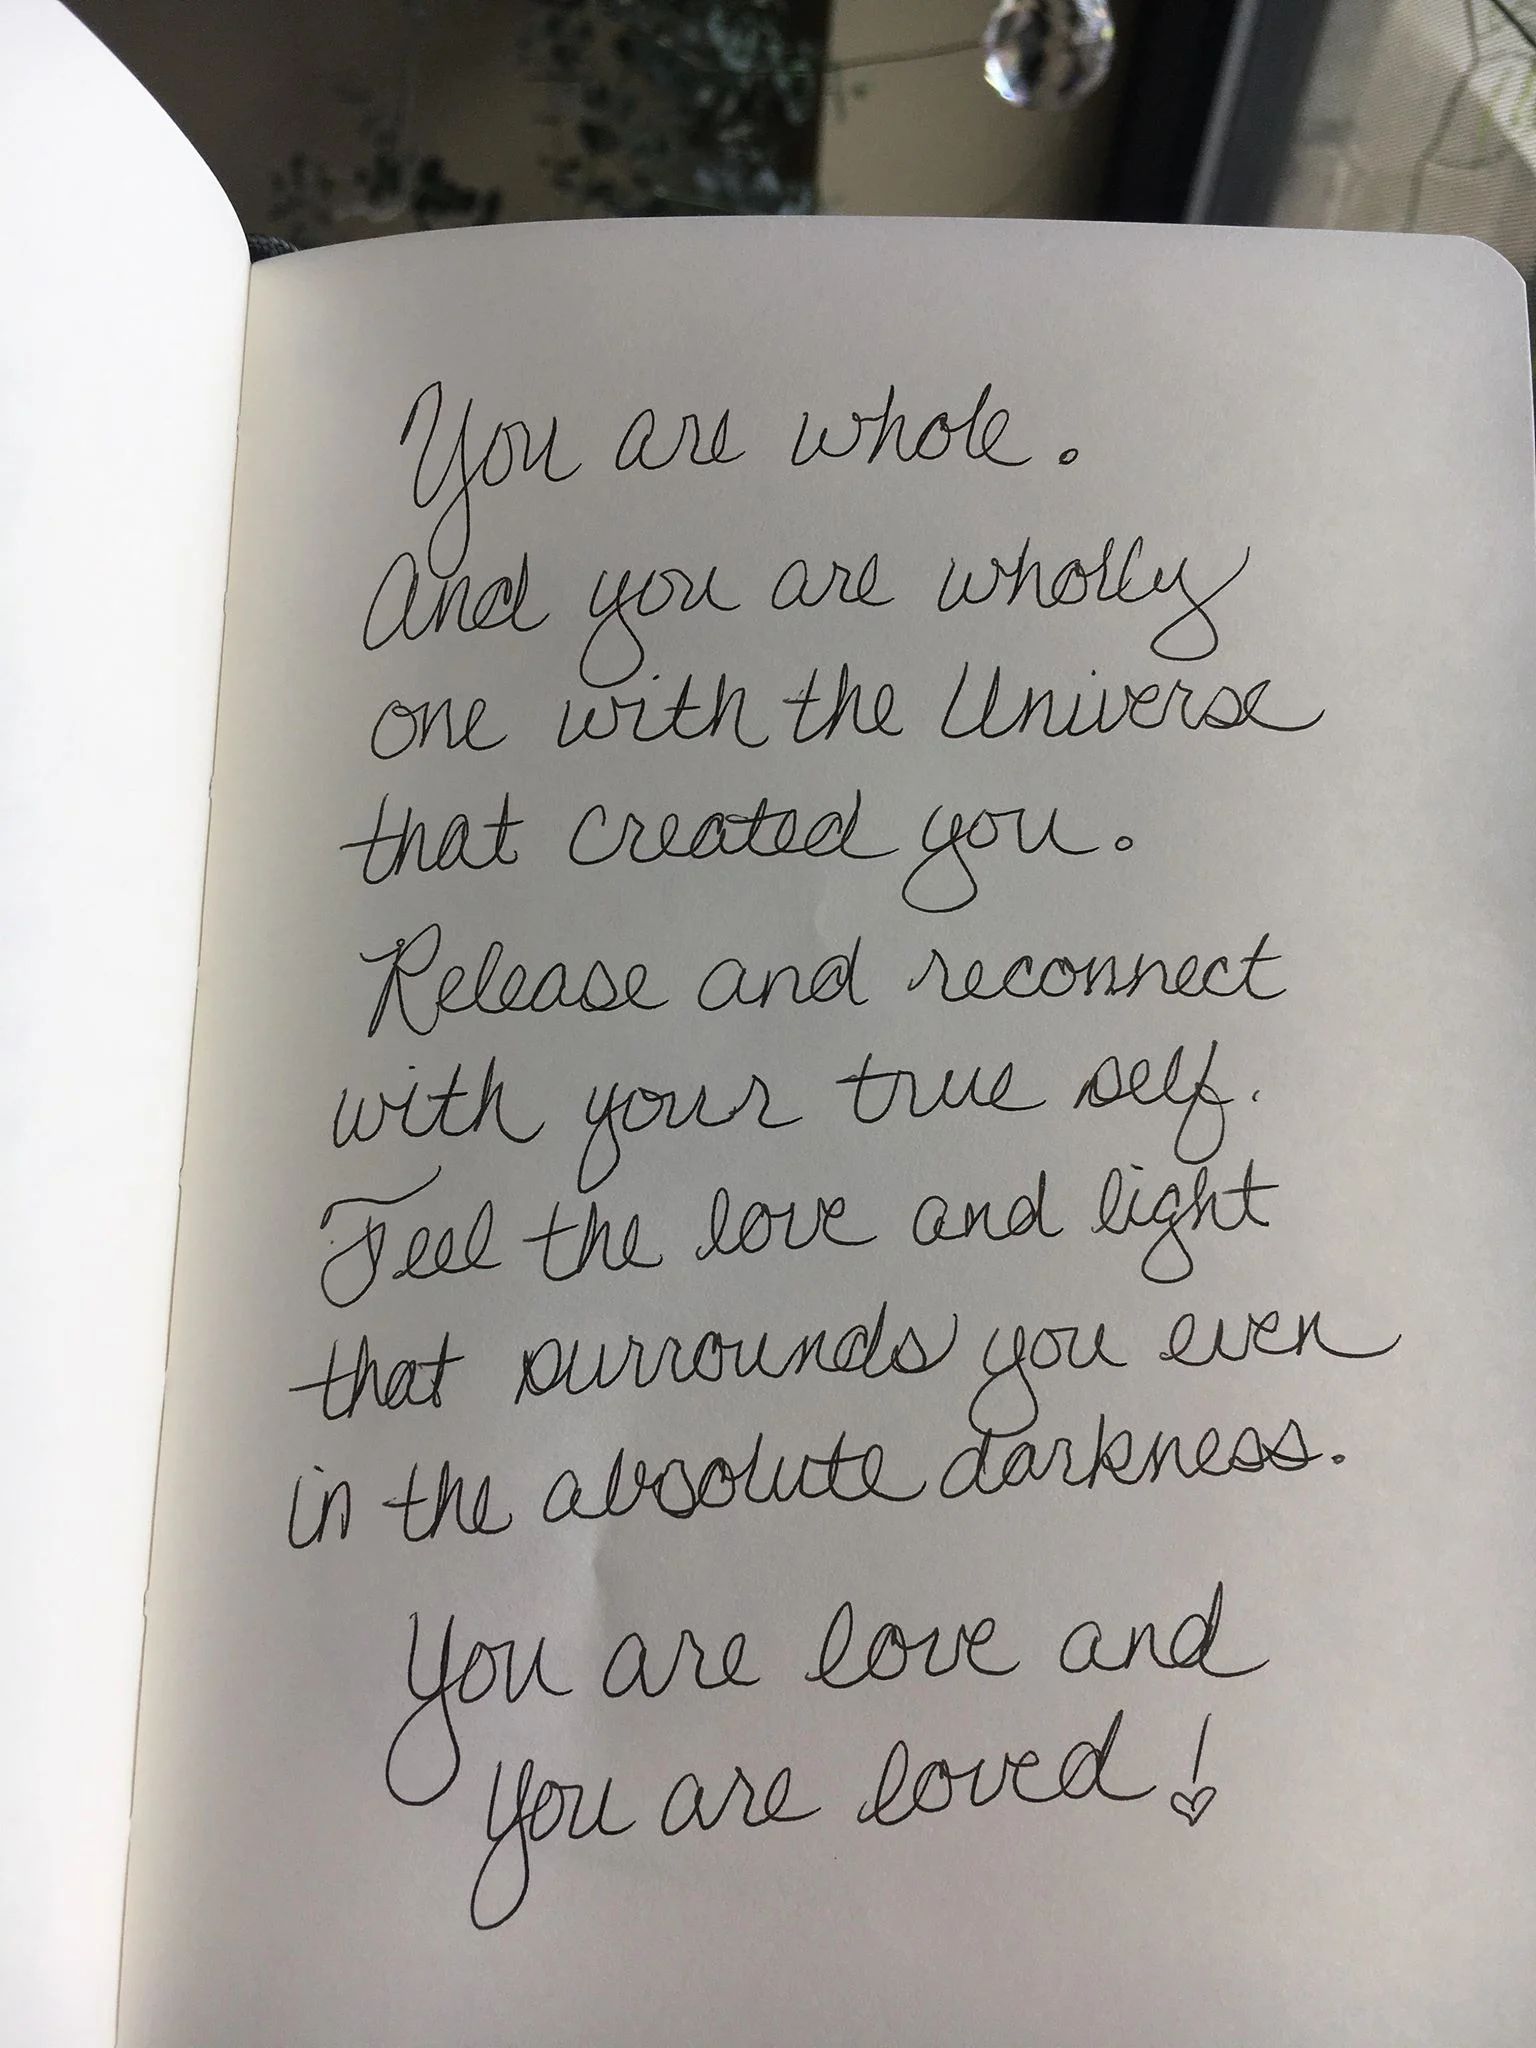 You are whole.
And you are wholly
one with the Universe
that created you.
Release and reconnect
with your true self.
Feel the love and light
that surrounds you even
in the absolute darkness.
You are love and
you are loved!